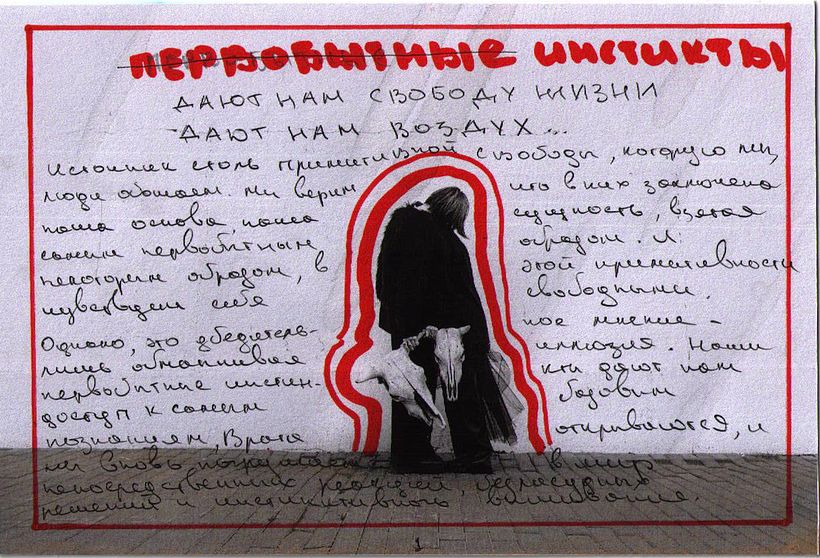 ПЕРВОБЫТНЫЕ ИНСТИКТЫ
ДАЮТ НАМ СВОБОДУ ЖИЗНИ
ДАЮТ НАМ ВОЗДУХ...
Источник столь примитивной свободы, которую мы,
люди обожаем. Мы верим что в них заключена
наша основа, наша сущность, взятая
самым первобытным образом. И
некоторым образом, в этой примитивности
чувствуем себя свободными.
Однако, это убедитель- ное мнение -
лишь обманчивая иллюзия. Наши
первобытные инстин- кты дают нам
доступ к самым базовым
познаниям, Врата открываются, и
мы вновь погружаемся в мир
непосредственных реакций, безрассудных
решений и инстинктивного выживания.
1